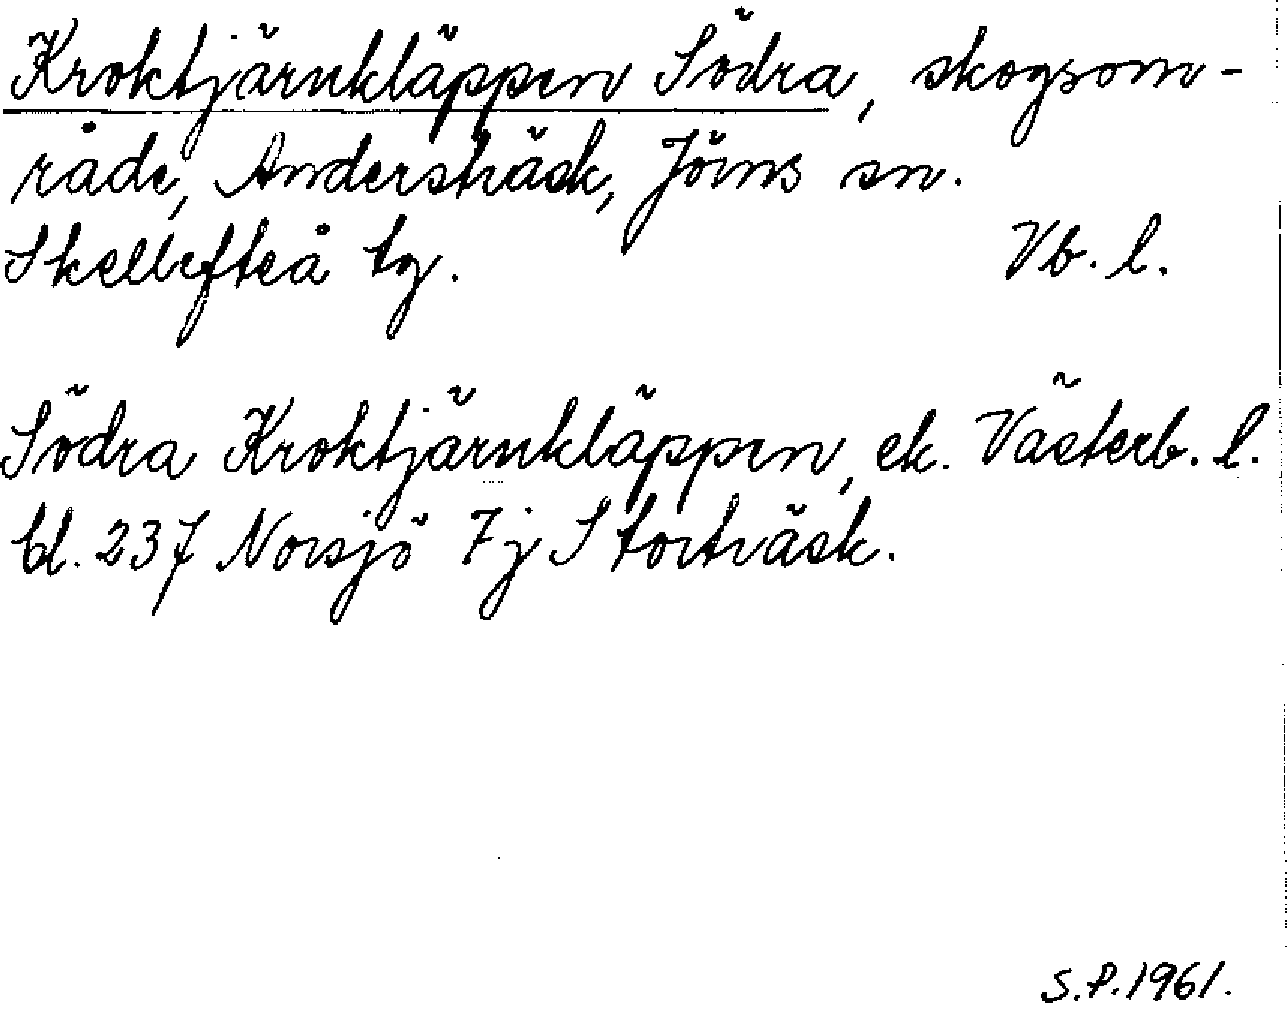 Kroktjärnkläppen Södra, skogsom-
råde, Andersträsk, Jörns sn.
Skellefteå tg. Vb. l.
Södra Kroktjärnkläppen, ek. Västerb. l.
bl. 237 Norsjö 7j Storträsk.
S.P. 1961.